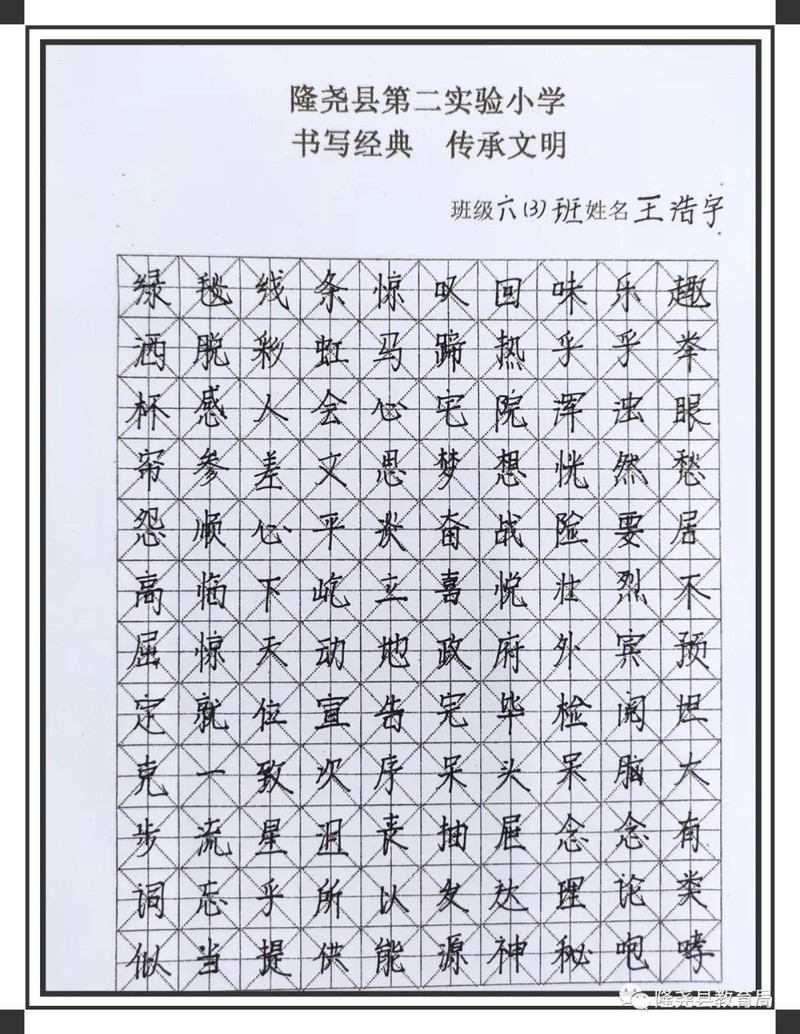 隆尧县第二实验小学
书写经典 传承文明
班级六(3)班姓名王浩宇
绿毯线条惊叹回味乐趣
洒脱彩虹马蹄热乎乎举
杯感人会心宅院浑浊眼
帘参差文思梦想恍然愁
怨顺心平炎奋战险要居
高临下屹立喜悦壮烈不
屈惊天动地政府外宾预
定就位宣告完毕检阅坦
克一致次序呆头呆脑大
步流星泪丧抽屉念念有
词忘乎所以发达理论类
似当提供能源神秘咆哮
隆尧县教育局